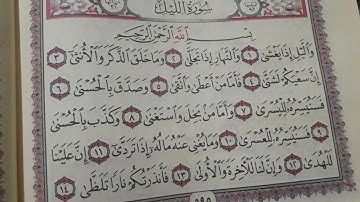 سُورَةُ اللَّيْلِ
بِسْمِ اللَّهِ الرَّحْمَٰنِ الرَّحِيمِ
وَاللَّيْلِ إِذَا يَغْشَىٰ ١ وَالنَّهَارِ إِذَا تَجَلَّىٰ ٢ وَمَا خَلَقَ الذَّكَرَ وَالْأُنثَىٰ ٣
إِنَّ سَعْيَكُمْ لَشَتَّىٰ ٤ فَأَمَّا مَنْ أَعْطَىٰ وَاتَّقَىٰ ٥ وَصَدَّقَ بِالْحُسْنَىٰ ٦
فَسَنُيَسِّرُهُ لِلْيُسْرَىٰ ٧ وَأَمَّا مَن بَخِلَ وَاسْتَغْنَىٰ ٨ وَكَذَّبَ بِالْحُسْنَىٰ
٩ فَسَنُيَسِّرُهُ لِلْعُسْرَىٰ ١٠ وَمَا يُغْنِي عَنْهُ مَالُهُ إِذَا تَرَدَّىٰ ١١ إِنَّ عَلَيْنَا
لَلْهُدَىٰ ١٢ وَإِنَّ لَنَا لَلْآخِرَةَ وَالْأُولَىٰ ١٣ فَأَنذَرْتُكُمْ نَارًا تَلَظَّىٰ ١٤
٥٩٥